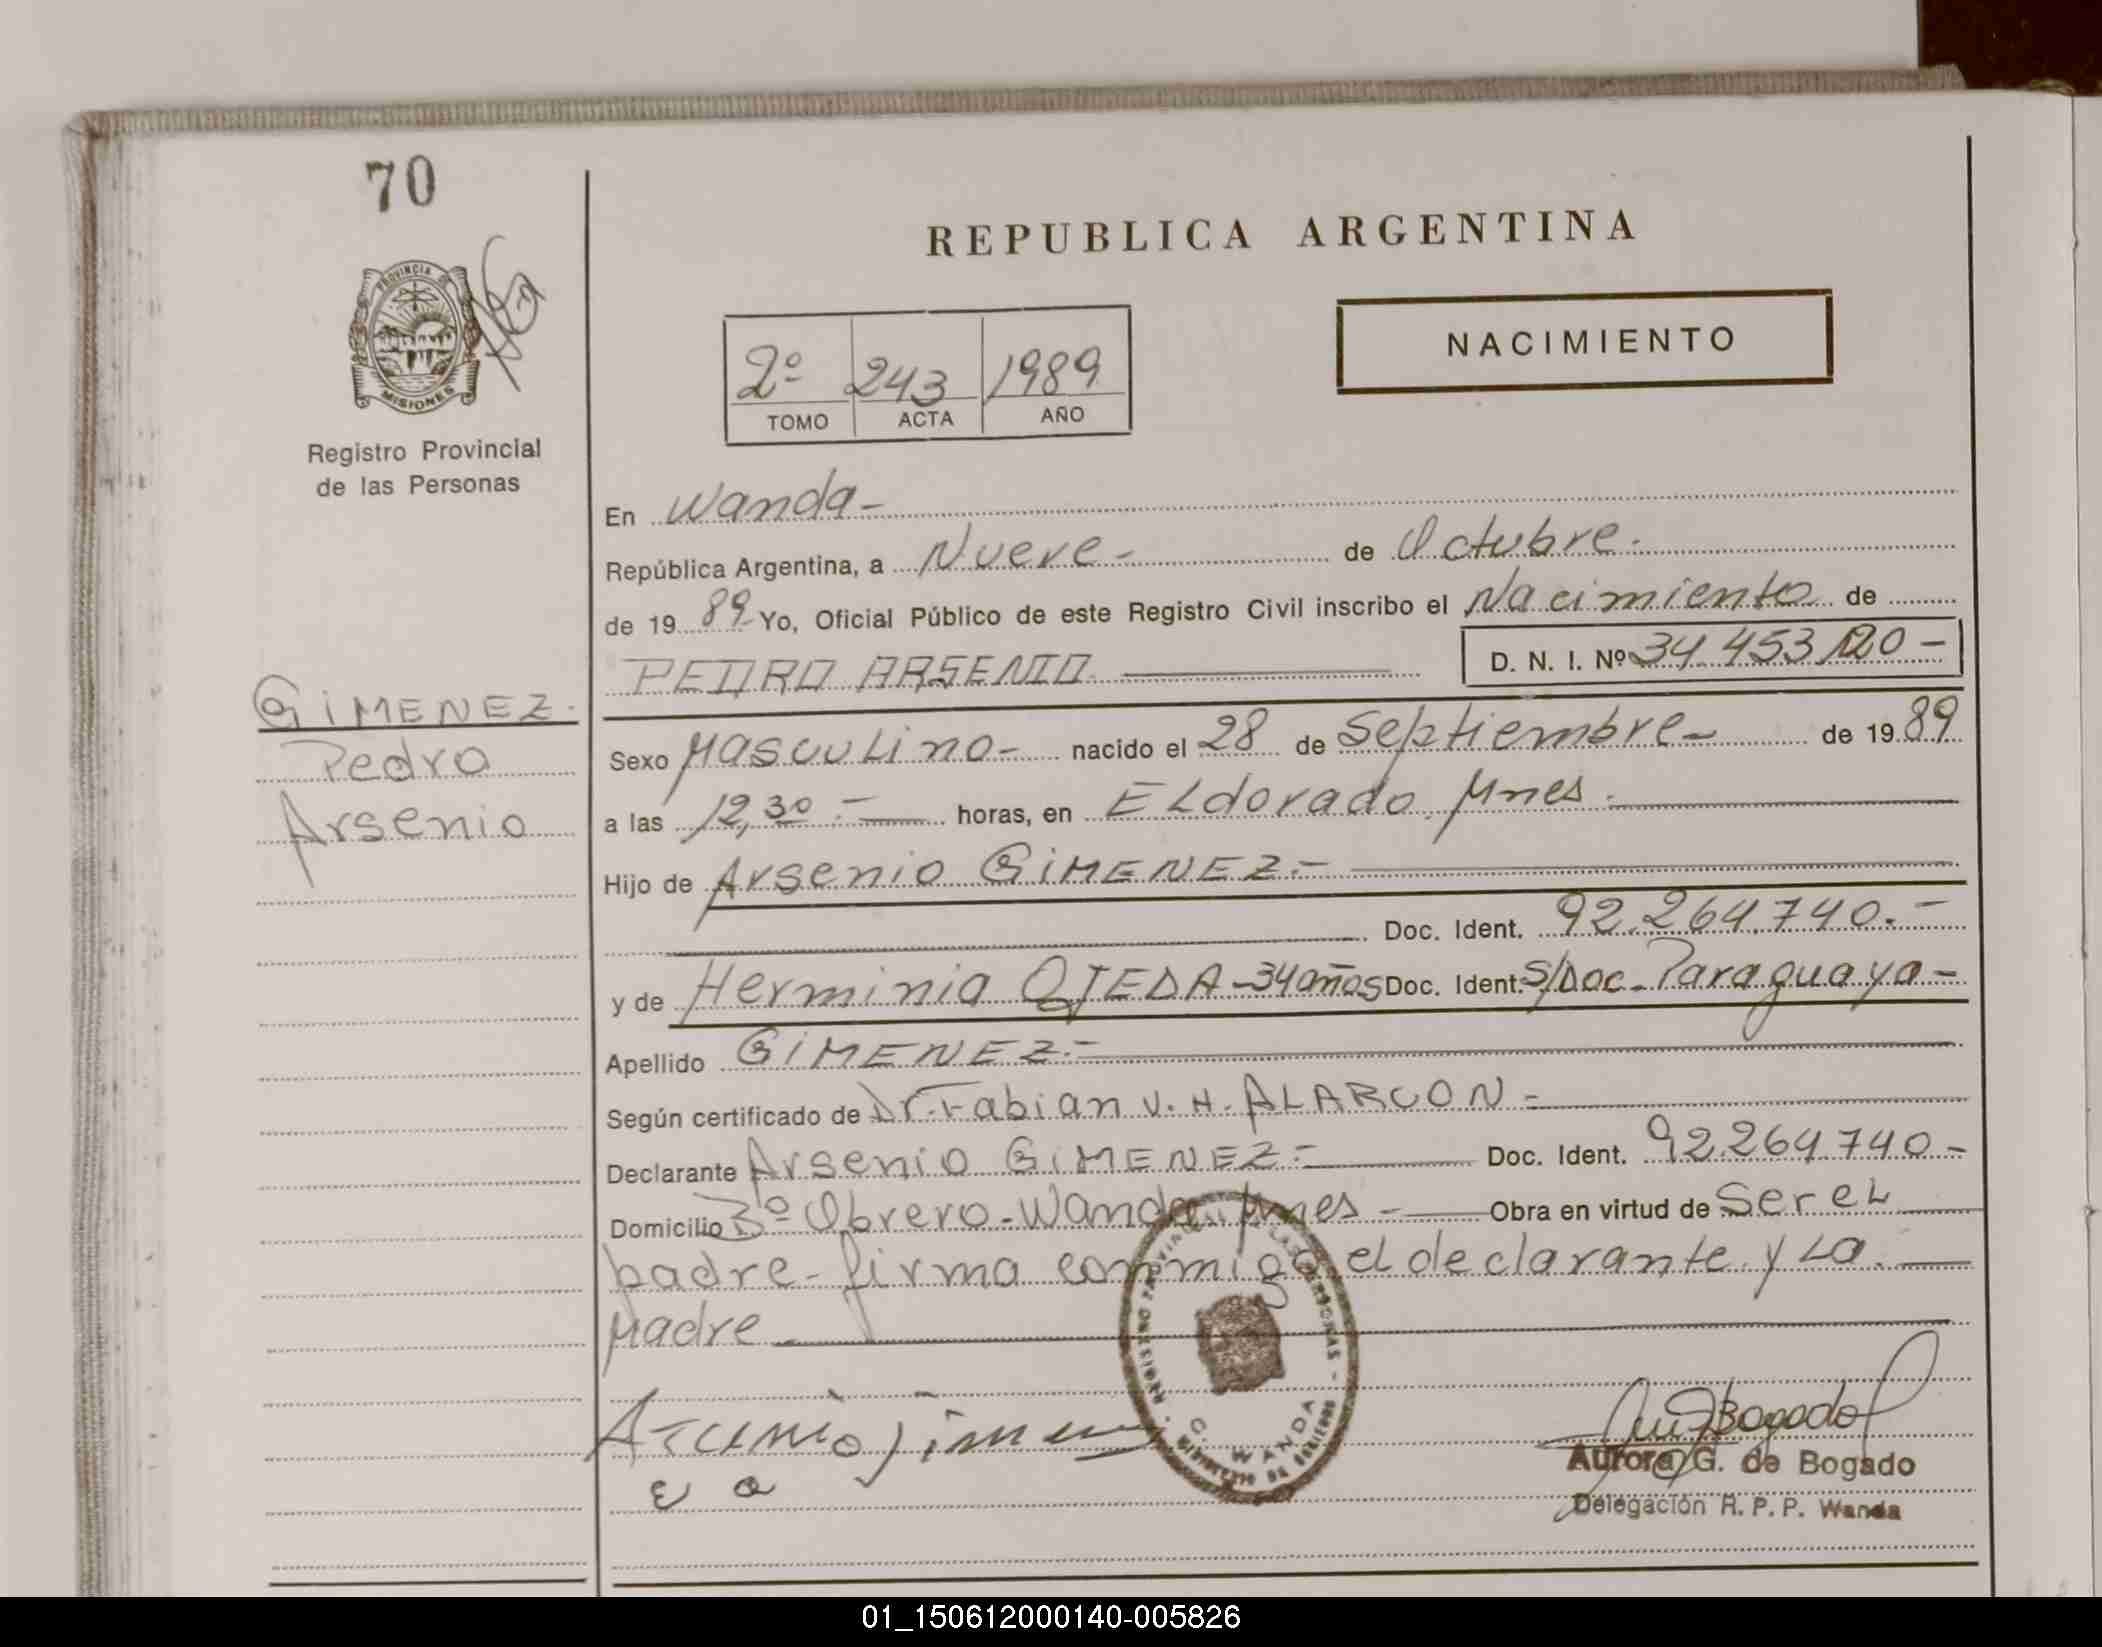 70
PROVINCIA DE
MISIONES
Registro Provincial
de las Personas
GIMENEZ.
Pedro
Arsenio
REPUBLICA ARGENTINA
NACIMIENTO
2º 243 1989
TOMO ACTA AÑO
En Wanda-
República Argentina, a Nueve- de Octubre.
de 1989 Yo, Oficial Público de este Registro Civil inscribo el Nacimiento de
PEDRO ARSENIO D. N. I. Nº 34 453 120-
Sexo Masculino- nacido el 28 de Septiembre- de 1989
a las 12,30.- horas, en ELdorado Mnes.
Hijo de Arsenio GIMENEZ.-
Doc. Ident. 92.264.740.-
y de Herminia OJEDA-34 años Doc. Ident. S/Doc. Paraguaya-
Apellido GIMENEZ.-
Según certificado de Dr. Fabian V. H. ALARCON-
Declarante Arsenio GIMENEZ.- Doc. Ident. 92.264.740-
Domicilio Bº Obrero-Wanda Mnes- Obra en virtud de Ser eL
padre-firma conmigo eL declarante y La
Madre-
REGISTRO PROVINCIAL DE LAS PERSONAS - MINISTERIO DE GOBIERNO
WANDA
Bogado
Aurora G. de Bogado
Delegación R. P. P. Wanda
01_150612000140-005826